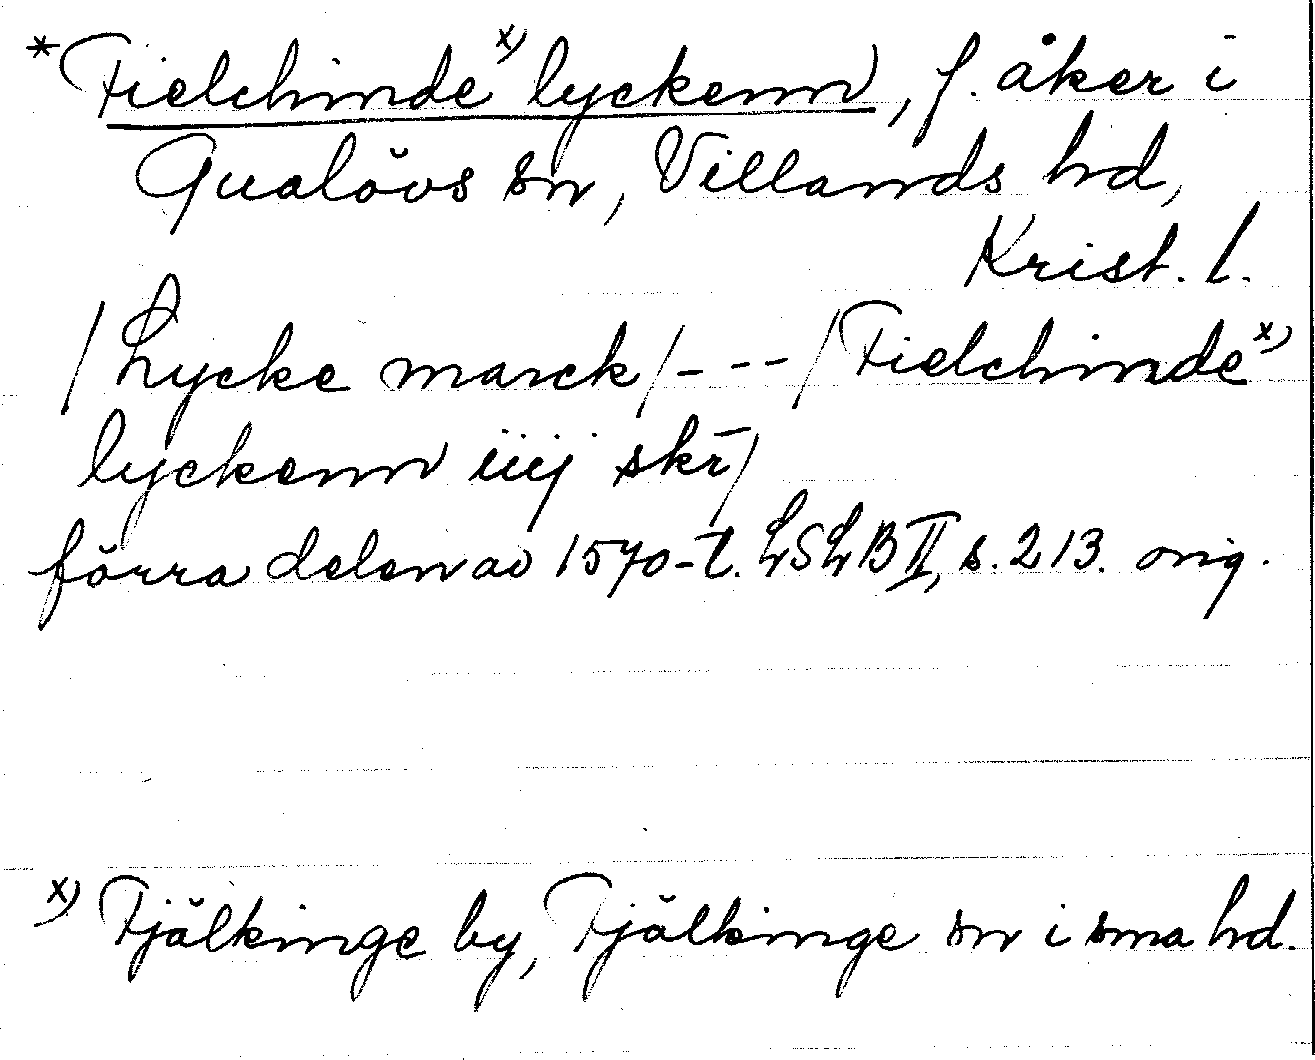 *Fielchinde x) lyckenn, f. åker i
Gualövs sn, Villands hd,
Krist. l.
/Lycke marck/---/Fielchinde x)
lyckenn iiij skr̄/
förra delen av 1570-t. LSLB II, s. 213. orig.
x) Fjälkinge by, Fjälkinge sn i sma hd.